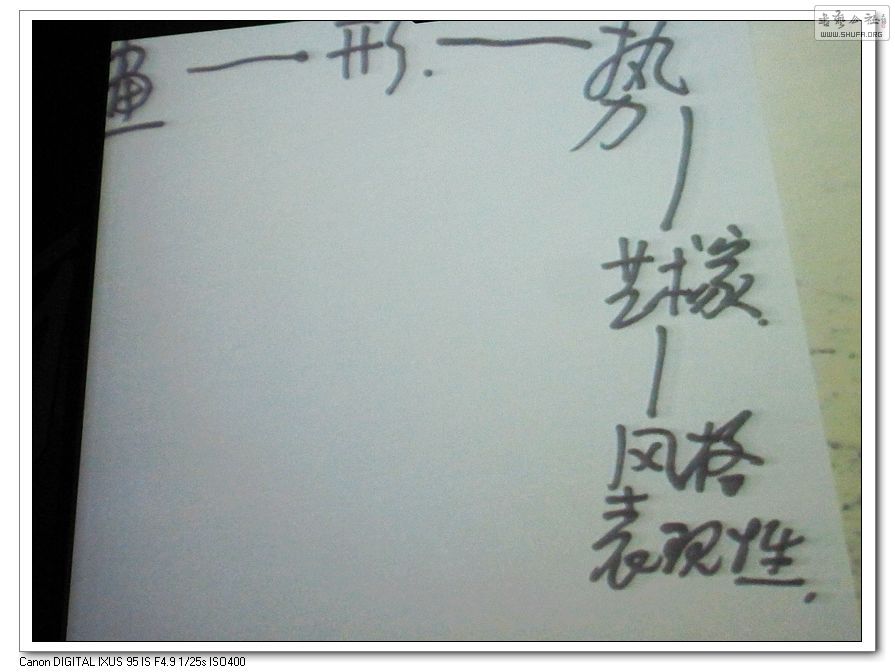 書艺公社
WWW.SHUFA.ORG
画 — 形. — 势
艺术家.
风格
表现性.
Canon DIGITAL IXUS 95 IS F4.9 1/25s ISO400